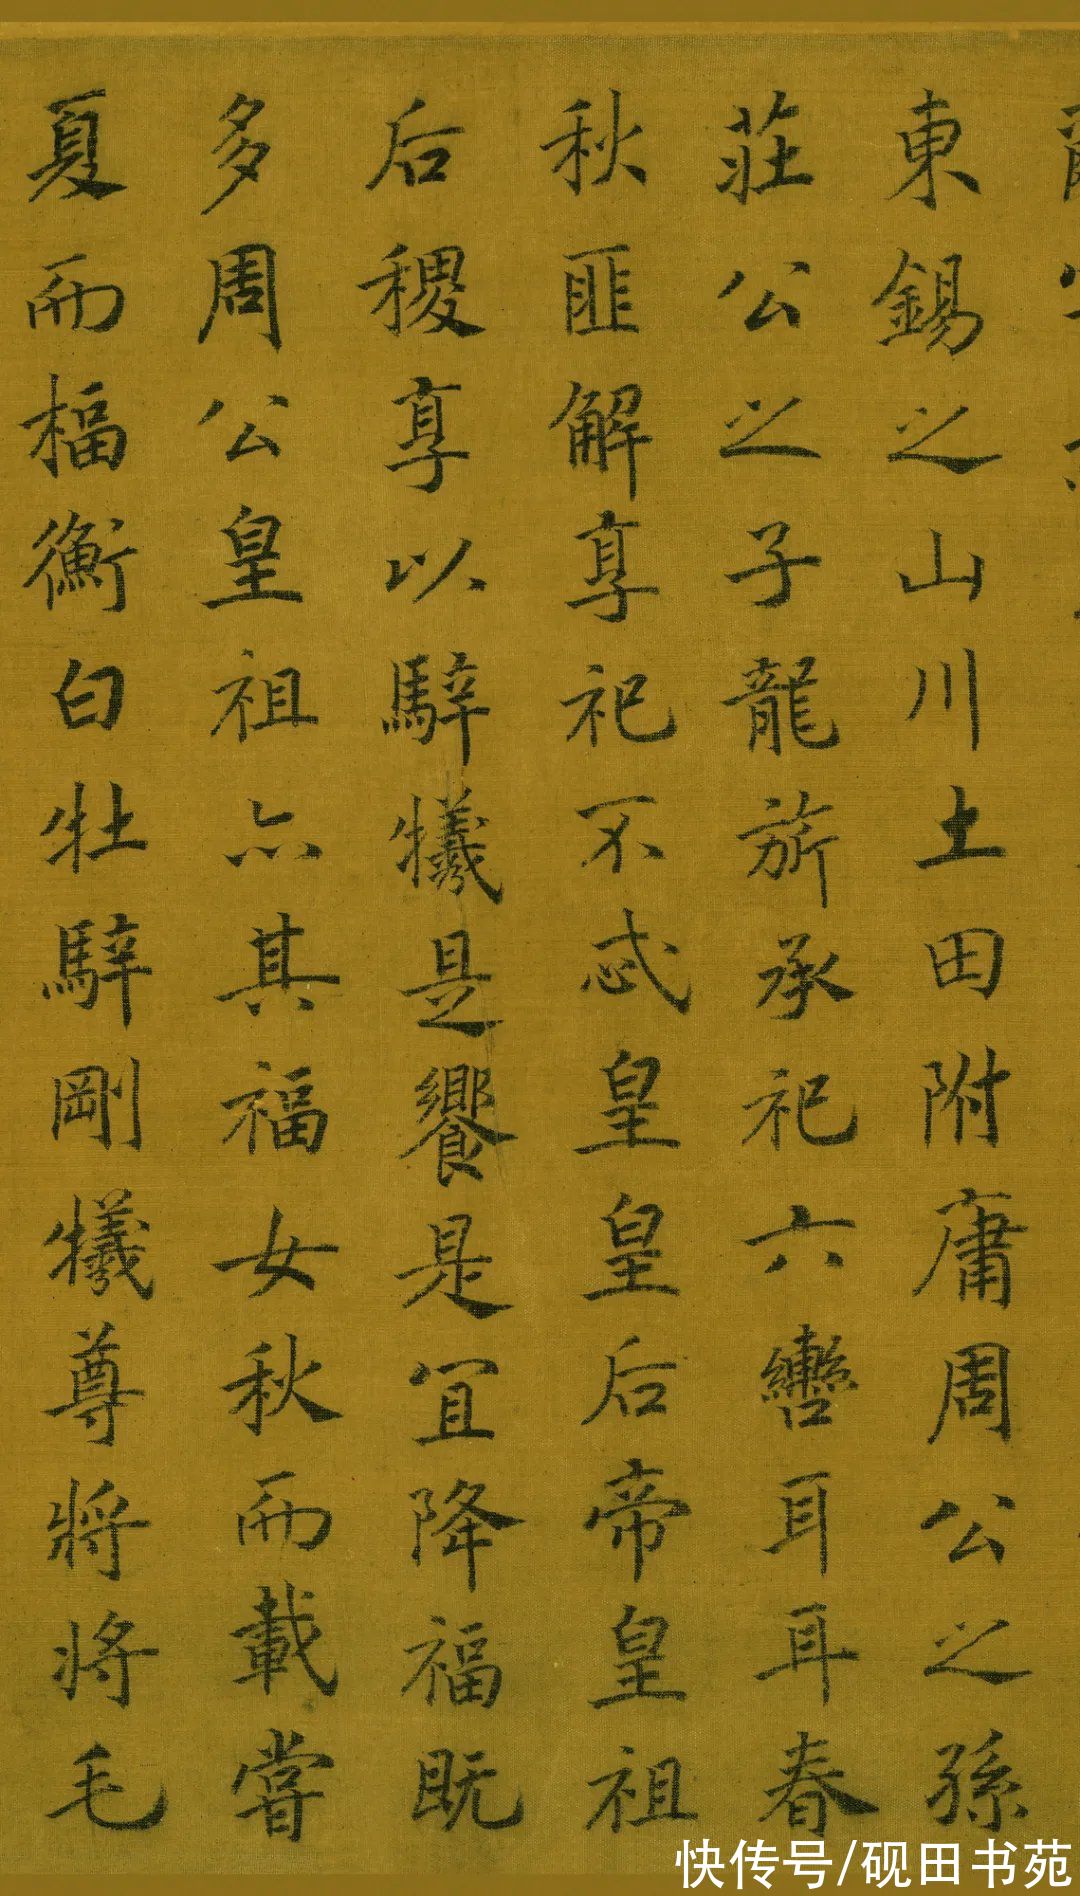 東錫之山川土田附庸周公之孫
莊公之子龍旂承祀六轡耳耳春
秋匪解享祀不忒皇皇后帝皇祖
后稷享以騂犧是饗是宜降福既
多周公皇祖亦其福女秋而載嘗
夏而楅衡白牡騂剛犧尊將將毛
快传号/砚田书苑